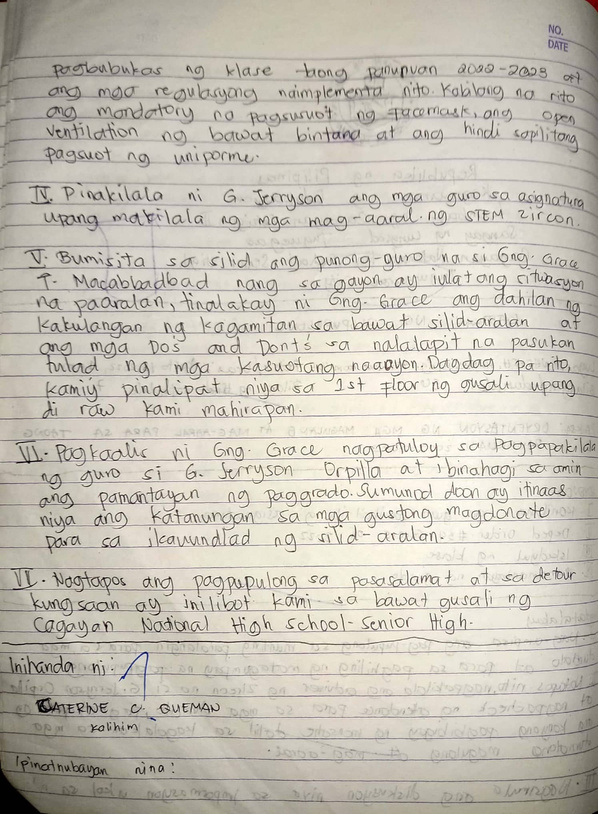 NO.
DATE
pagbubukas ng klase -tong panunuan 2022-2023 at
ang mga regulasyong naimplementa nito. Kabilang na rito
ang mandatory na pagsusuot ng facemask, ang open
ventilation ng bawat bintana at ang hindi sapilitang
pagsuot ng uniporme.
IV. Pinakilala ni G. Jerryson ang mga guro sa asignatura
upang makilala ng mga mag-aaral ng STEM Zircon.
V. Bumisita sa silid ang punong-guro na si Gng. Grace
T. Macabbadbad nang sa gayon ay iulat ang sitwasyon
na paaralan, tinalakay ni Gng. Grace ang dahilan ng
kakulangan ng kagamitan sa bawat silid-aralan at
ang mga Do's and Dont's sa nalalapit na pasukan
tulad ng mga kasuotang naaayon. Dagdag pa rito,
kami'y pinalipat niya sa 1st floor ng gusali upang
di raw kami mahirapan.
VI. Pagkaalis ni Gng. Grace nagpatuloy sa pagpapakilala
ng guro si G. Jerryson Orpilla at ibinahagi sa amin
ang pamantayan ng paggrado. Sumunod doon ay itinaas
niya ang katanungan sa mga gustong magdonate
para sa ikauundlad ng silid-aralan.
VI. Nagtapos ang pagpupulong sa pasasalamat at sa detour
kungsaan ay inilibot kami sa bawat gusali ng
Cagayan National High school-Senior High.
Inihanda ni:
CATERINE C. QUEMAN
kalihim
Ipinatnubayan nina: